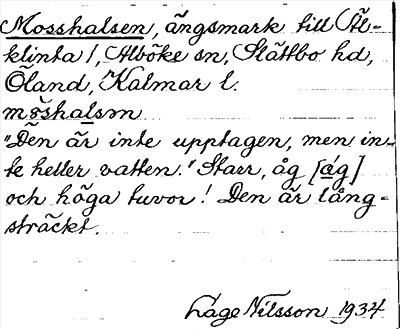 Mosshalsen, ängsmark till Äl-
klinta 1, Alböke sn, Slättbo hd,
Öland, Kalmar l.
möshalsm
"Den är inte upptagen, men in-
te heller vatten." Starr, åg [ág]
och höga tuvor! Den är lång-
sträckt.
Lage Nilsson 1934